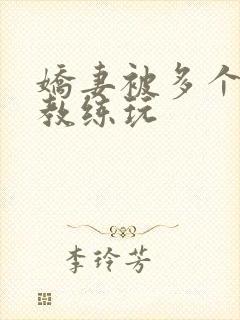 娇妻被多个
教练玩
李玲芳